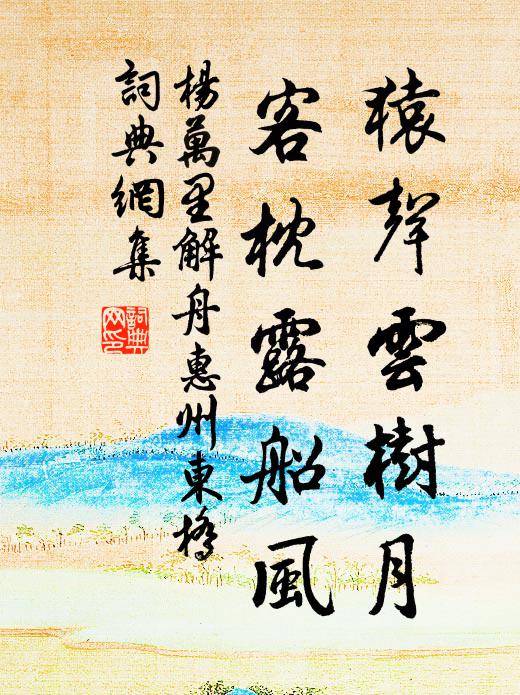 猿聲雲樹月
客枕露船風
楊萬里解舟惠州東橋
詞典網集
詞典网印